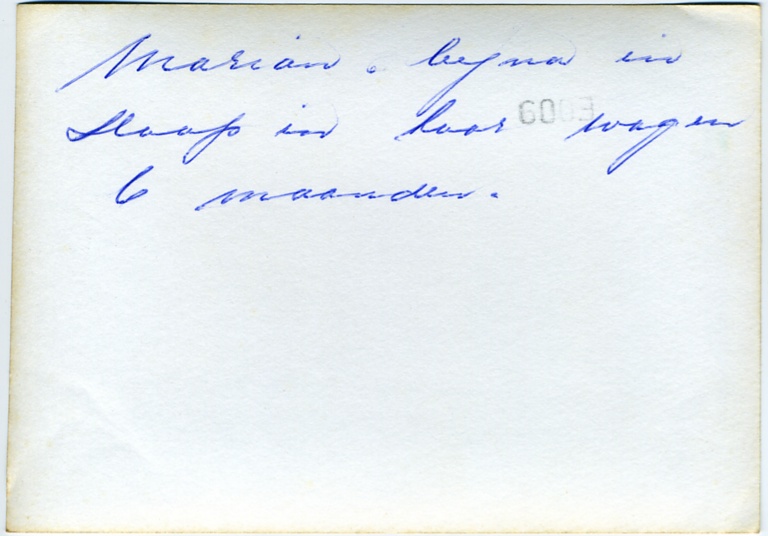 Marian. byna in
slaap in haar wagen
6 maanden.
6003